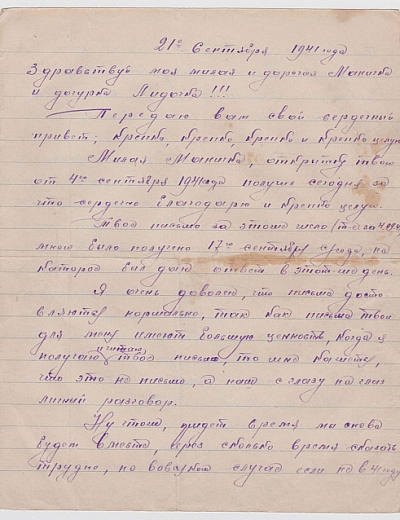 21го Сентября 1941 года
Здравствуй моя милая и дорогая Маничка
и дочурка Лидочка!!!
Передаю вам свой сердечный
привет; крепко, крепко, крепко и крепко целую
Милая Маничка, открытку твою
от 4го сентября 1941года получил сегодня за
что сердечно благодарю и крепко целую.
Твоё письмо за этоже число (т.е за 4.09.41)
мною было получено 17го сентября с/года, на
которое был дан ответ в этот-же день.
Я очень доволен, что письма доста-
вляют нормально, так как письма твои
для меня имеют большую ценность, когда я
получаю и читаю твоё письмо, то мне кажется,
что это не письмо, а наш с глазу на глаз
личный разговор.
Ну чтож, придет время мы снова
будем вместе, через сколько время сказать
трудно, но вовсяком случае если не в 41 году